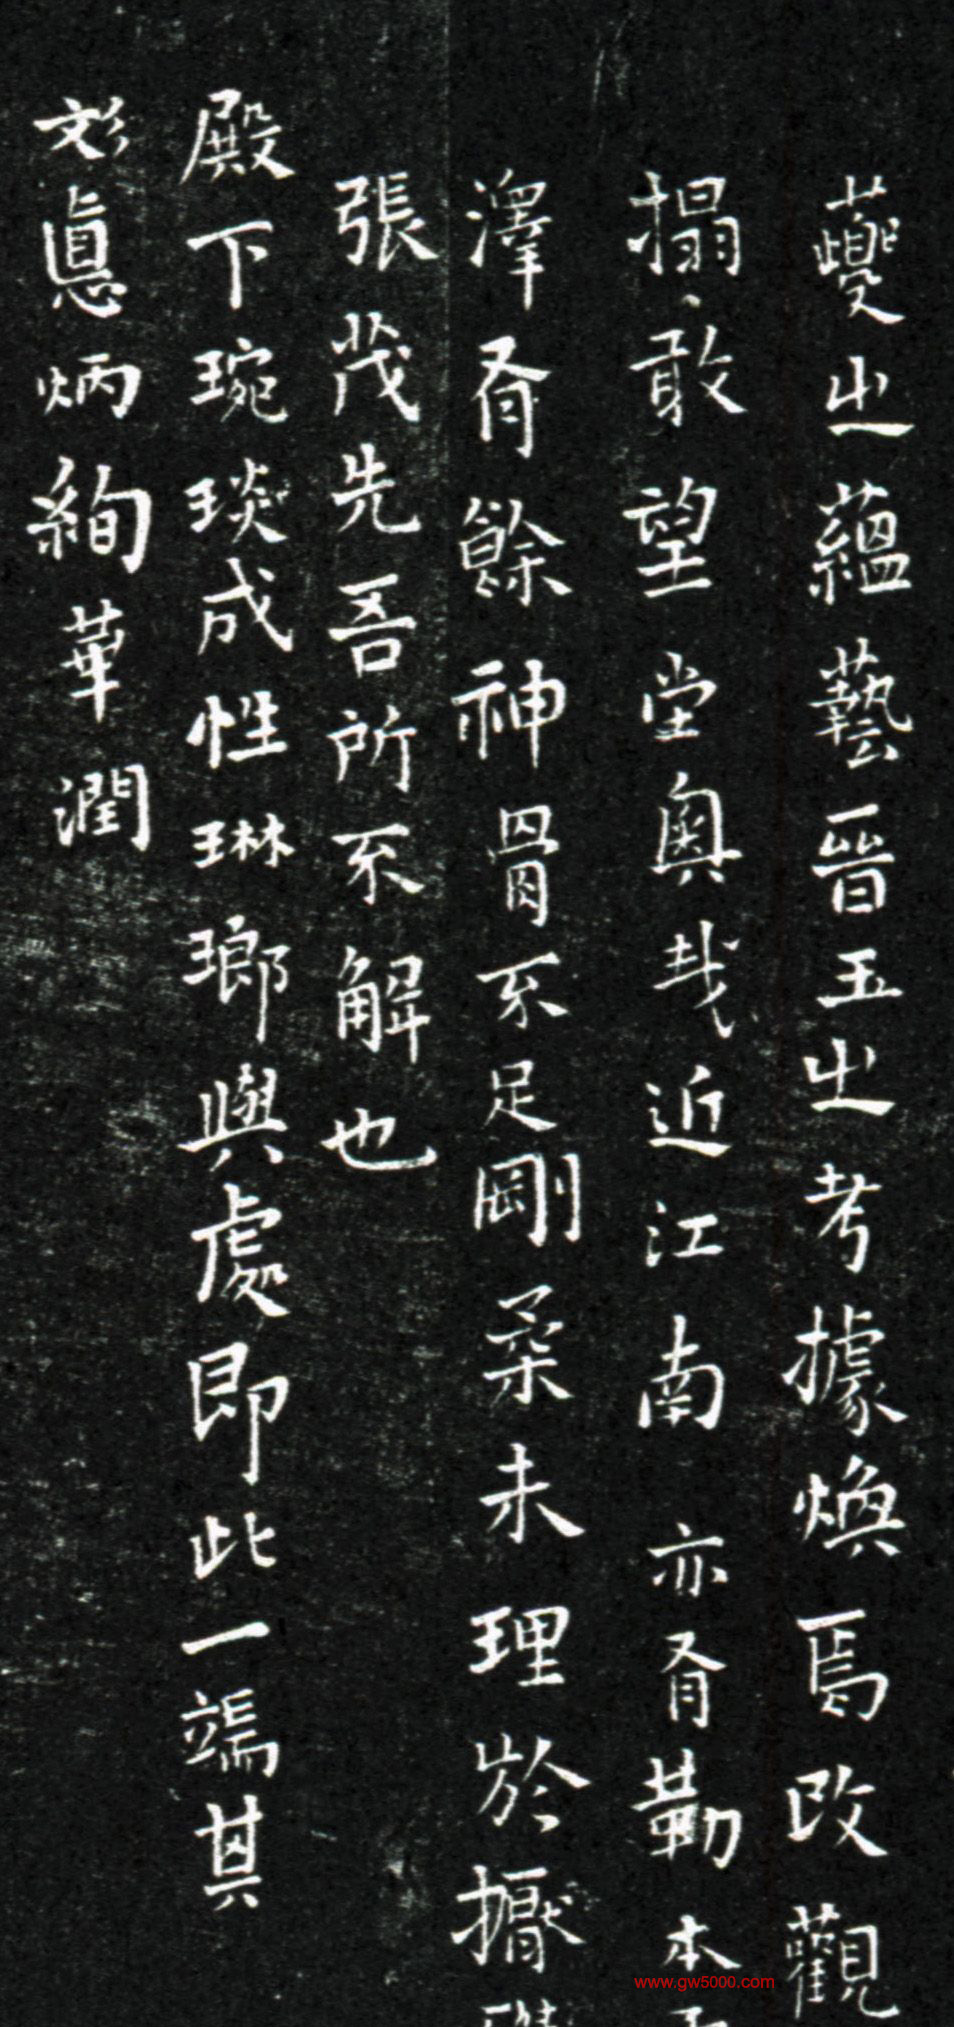 夔之蘊藝晉玉之考據煥焉改觀
搨敢望堂奥哉近江南亦有勒本
澤有餘神骨不足剛柔未理於攟
張茂先吾所不解也
殿下琬琰成性琳瑯與處即此一端其
彣慤炳絢華潤
www.gw5000.com